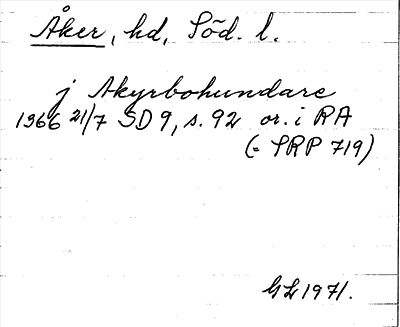 Åker, hd, Söd. l.
j Akyrbohundare
1366 21/7 SD 9, s. 92 or. i RA
(= SRP 719)
GL 1971.